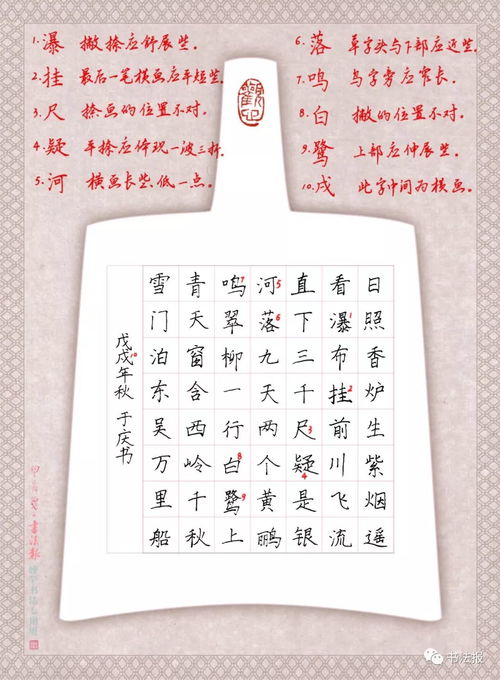 1.瀑 撇捺应舒展些.
2.挂 最后一笔横画应平短些.
3.尺 捺画的位置不对.
4.疑 平捺应体现一波三折.
5.河 横画长些、低一点.
6.落 草字头与下部应近些.
7.鸣 鸟字旁应窄长.
8.白 撇的位置不对.
9.鹭 上部应伸展些.
10.戌 此字中间为横画.
日照香炉生紫烟遥
看瀑1布挂2前川飞流
直下三千尺3疑4是银
河5落6九天两个黄鹂
鸣7翠柳一行白8鹭9上
青天窗含西岭千秋
雪门泊东吴万里船
戊戌10年秋 于庆书
书法报
书法报